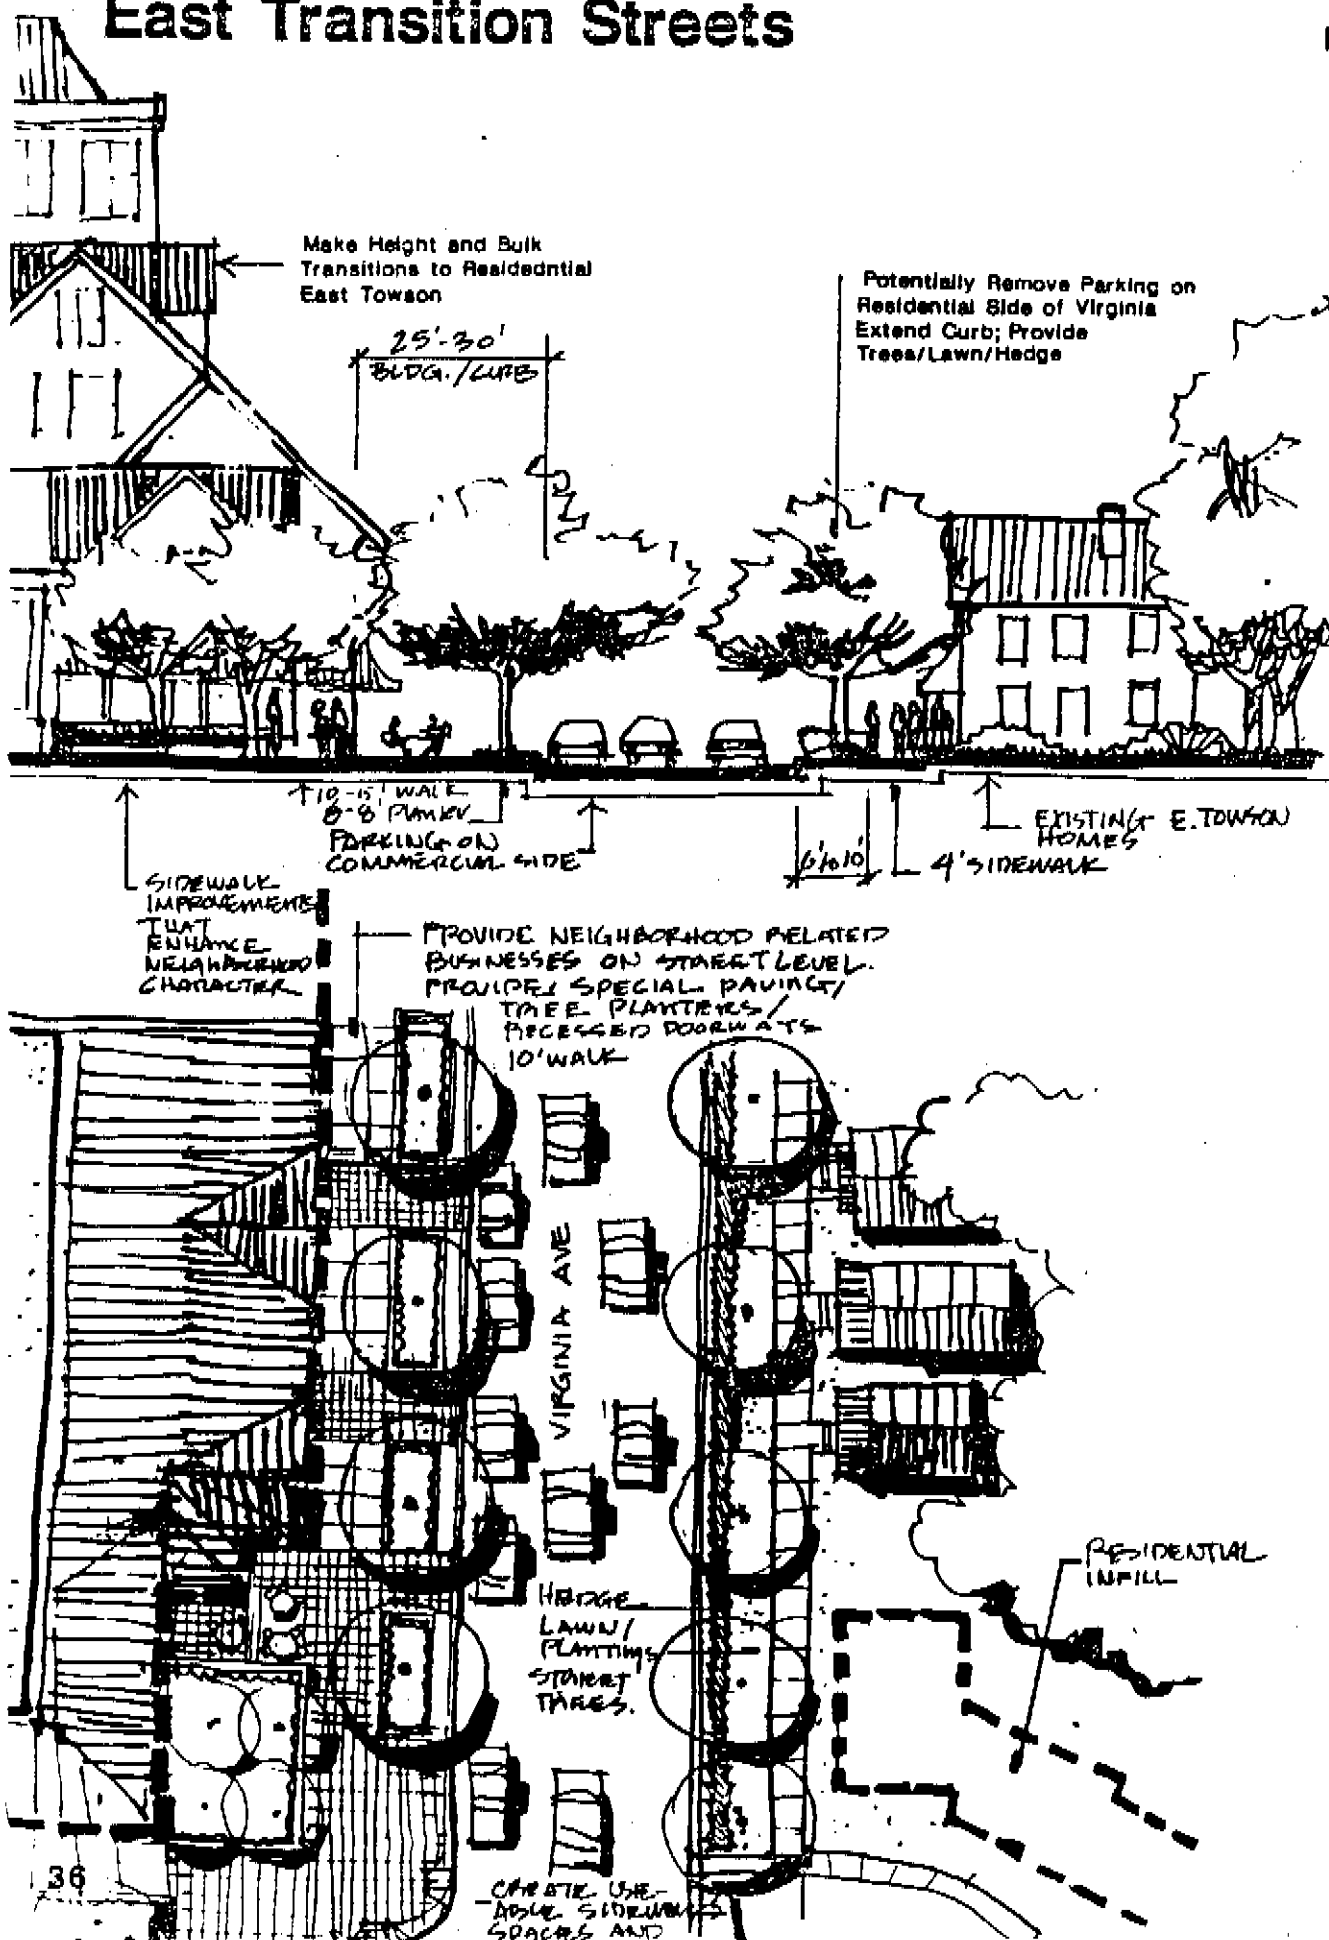 East Transition Streets
Make Height and Bulk
Transitions to Residedntial
East Towson
Potentially Remove Parking on
Residential Side of Virginia
Extend Curb; Provide
Trees/Lawn/Hedge
25'-30'
BLDG./CURB
10-15' WALK
8-8' PLANTER
PARKING ON
COMMERCIAL SIDE
6'to10'
4' SIDEWALK
EXISTING E. TOWSON
HOMES
SIDEWALK
IMPROVEMENTS
THAT
ENHANCE
NEIGHBORHOOD
CHARACTER
PROVIDE NEIGHBORHOOD RELATED
BUSINESSES ON STREET LEVEL.
PROVIDE SPECIAL PAVING/
TREE PLANTERS/
RECESSED DOORWAYS
10' WALK
VIRGINIA AVE
HEDGE
LAWN/
PLANTINGS
STREET
TREES.
RESIDENTIAL
INFILL
36
CREATE USE-
ABLE SIDEWALK
SPACES AND